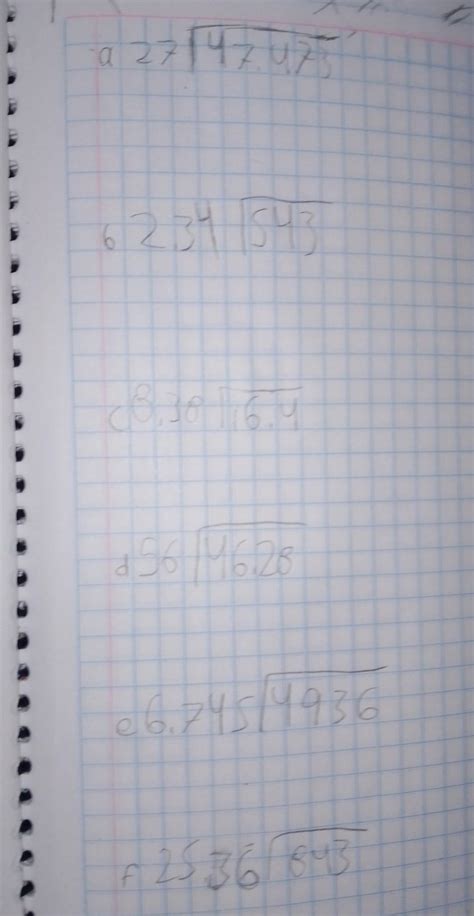 a 27 √47.475
b 2.34 √543
c 8.36 √6.4
d 56 √46.28
e 6.745 √4936
f 25.36 √843